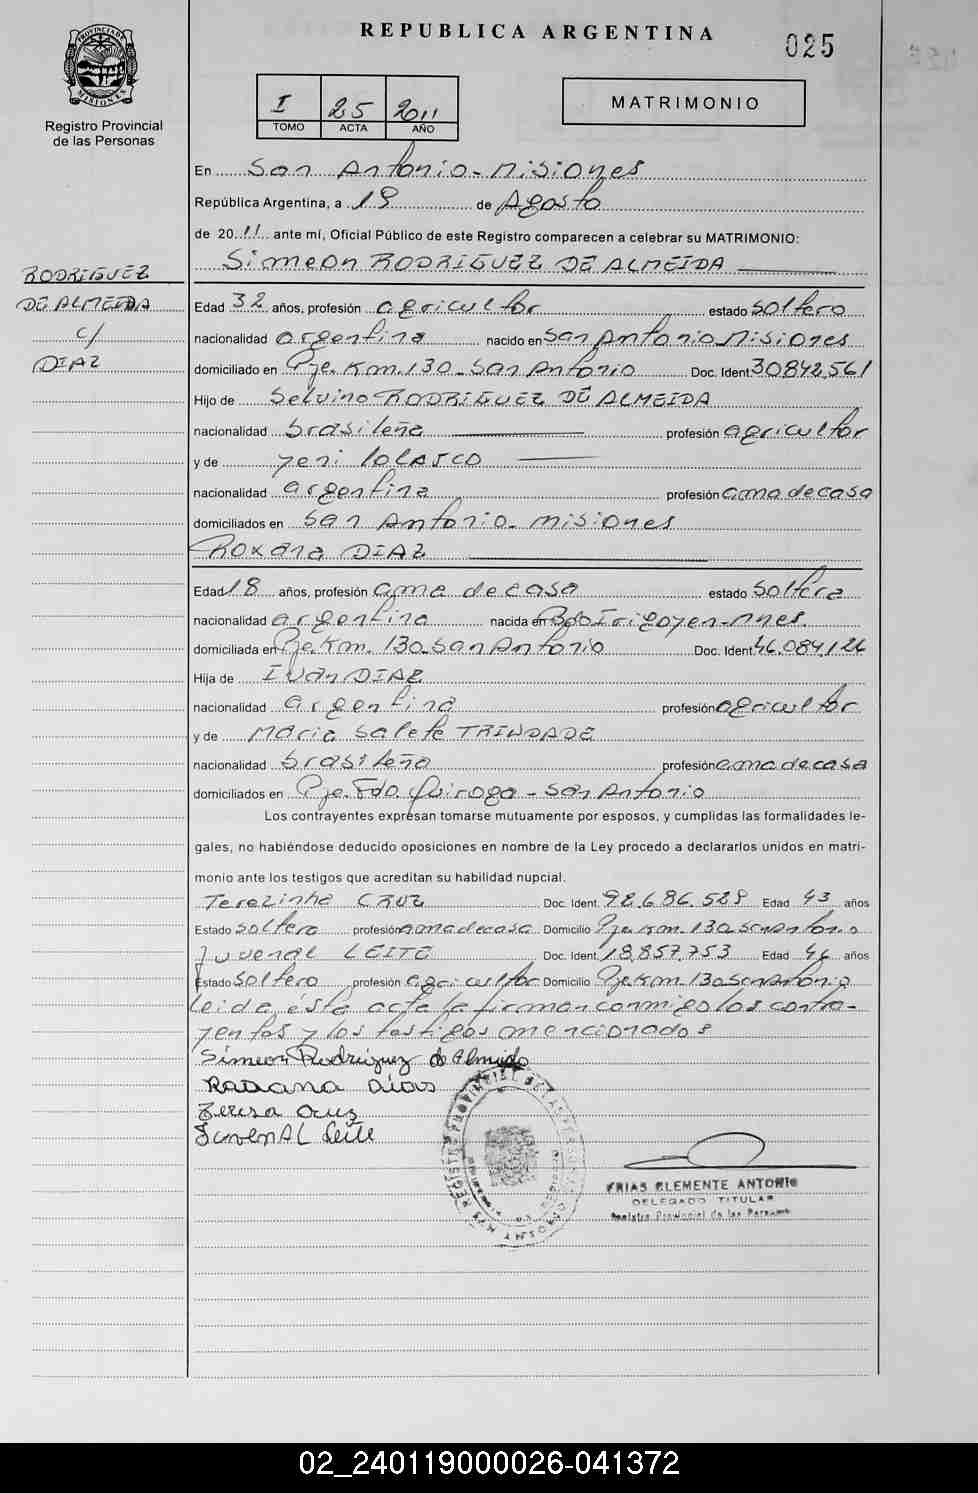 REPUBLICA ARGENTINA
025
PROVINCIA DE MISIONES
Registro Provincial
de las Personas
I 25 2011
TOMO ACTA AÑO
MATRIMONIO
En San Antonio - Misiones
República Argentina, a 19 de Agosto
de 2011 ante mí, Oficial Público de este Registro comparecen a celebrar su MATRIMONIO:
Simeon RODRIGUEZ DE ALMEIDA
RODRIGUEZ
DE ALMEIDA
c/
DIAZ
Edad 32 años, profesión agricultor estado soltero
nacionalidad argentina nacido en San Antonio Misiones
domiciliado en Pje. Km. 130 - San Antonio Doc. Ident 30842,561
Hijo de Selvino RODRIGUEZ DE ALMEIDA
nacionalidad brasileña profesión agricultor
y de yeni
nacionalidad argentina profesión ama de casa
domiciliados en San Antonio - Misiones
Roxana DIAZ
Edad 18 años, profesión ama de casa estado soltera
nacionalidad argentina nacida en Bdo Irigoyen - Mnes.
domiciliada en Pje. Km. 130 - San Antonio Doc. Ident 46.084,126
Hija de Ivan DIAZ
nacionalidad argentina profesión agricultor
y de Maria Salete TRINDADE
nacionalidad brasileña profesión ama de casa
domiciliados en Pje. Fdo. Quiroga - San Antonio
Los contrayentes expresan tomarse mutuamente por esposos, y cumplidas las formalidades le-
gales, no habiéndose deducido oposiciones en nombre de la Ley procedo a declararlos unidos en matri-
monio ante los testigos que acreditan su habilidad nupcial.
Terezinha CRUZ Doc. Ident. 92.686.528 Edad 43 años
Estado soltero profesión ama de casa Domicilio Pje Km. 130 San Antonio
Juvenal LEITE Doc. Ident. 18,857,753 Edad 46 años
Estado soltero profesión agricultor Domicilio Pje Km. 130 San Antonio
Leida ésta acta la firman conmigo los contra-
yentes y los testigos mencionados
Simeon Rodriguez de Almeida
Roxana Dias
Teresa Cruz
JuvenAL Leite
FRIAS CLEMENTE ANTONIO
DELEGADO TITULAR
Registro Provincial de las Personas
02_240119000026-041372